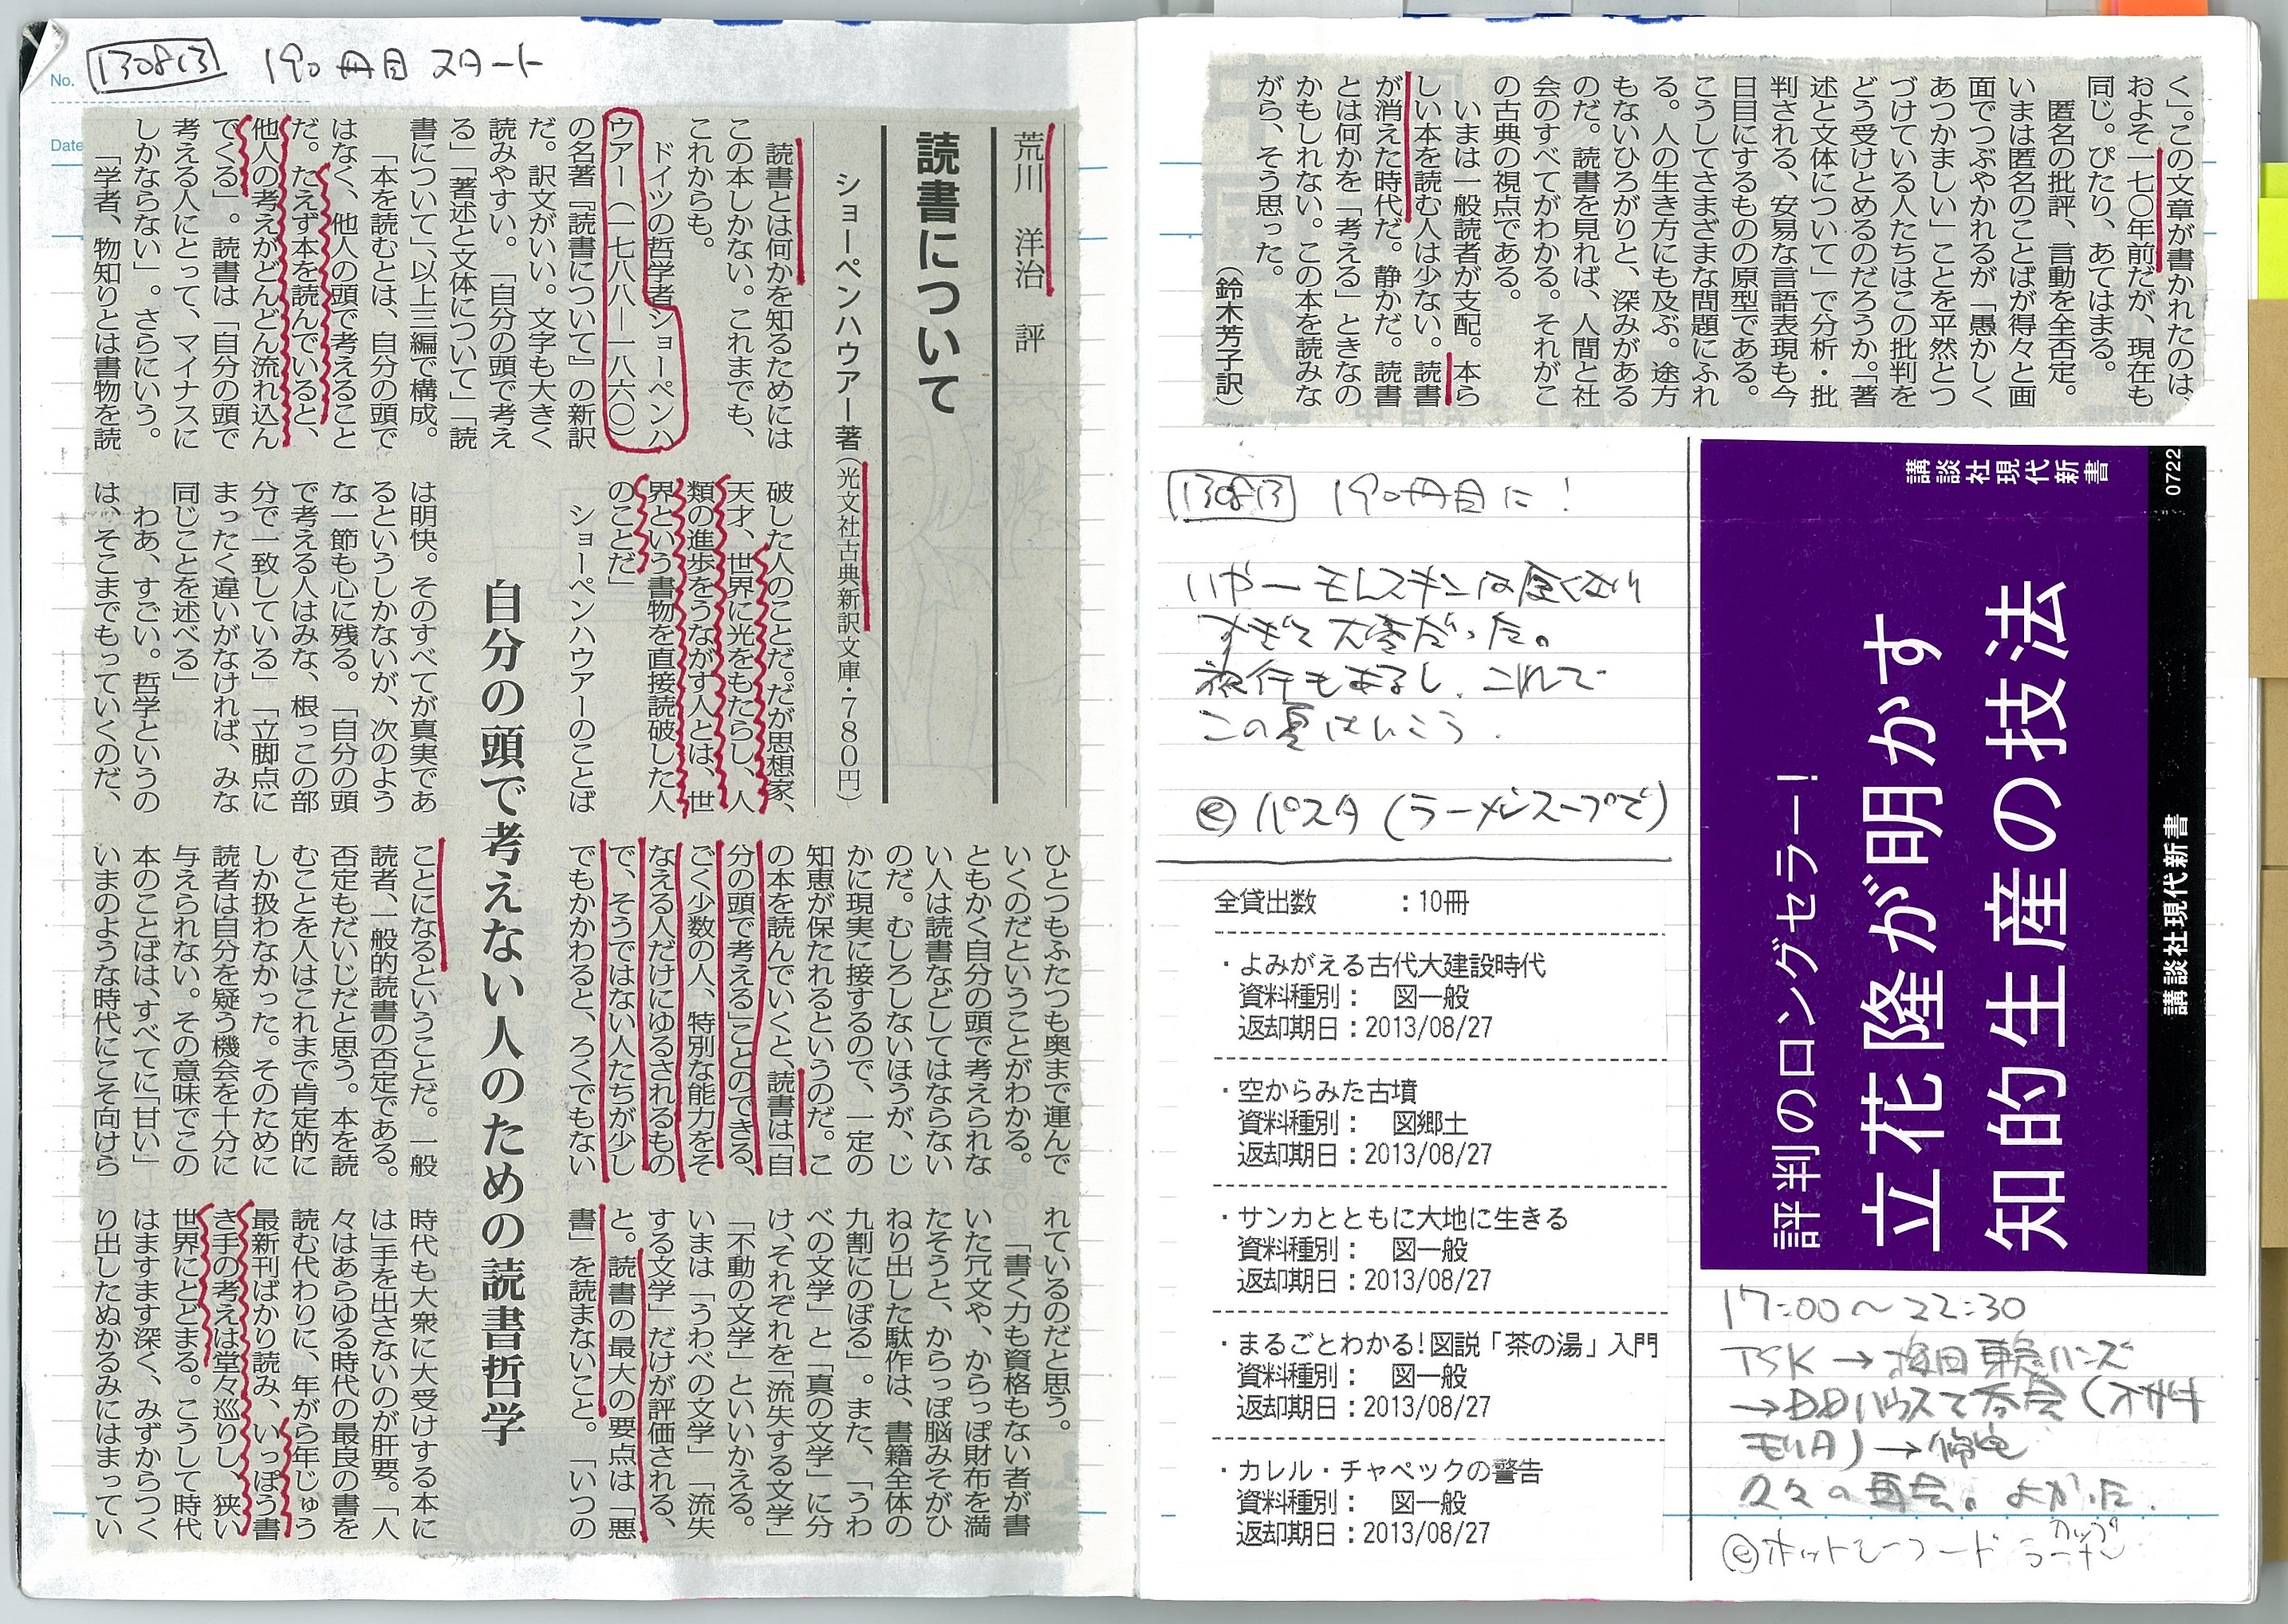 No.
Date
130813 190冊目 スタート
荒川 洋治 評
読書について
ショーペンハウアー著(光文社古典新訳文庫・780円)
読書とは何かを知るためには
この本しかない。これまでも、
これからも。
ドイツの哲学者ショーペンハ
ウアー(一七八八―一八六〇)
の名著『読書について』の新訳
だ。訳文がいい。文字も大きく
読みやすい。「自分の頭で考え
る」「著述と文体について」「読
書について」、以上三編で構成。
「本を読むとは、自分の頭で
はなく、他人の頭で考えること
だ。たえず本を読んでいると、
他人の考えがどんどん流れ込ん
でくる」。読書は「自分の頭で
考える人にとって、マイナスに
しかならない」。さらにいう。
「学者、物知りとは書物を読
破した人のことだ。だが思想家、
天才、世界に光をもたらし、人
類の進歩をうながす人とは、世
界という書物を直接読破した人
のことだ」
ショーペンハウアーのことば
は明快。そのすべてが真実であ
るというしかないが、次のよう
な一節も心に残る。「自分の頭
で考える人はみな、根っこの部
分で一致している」「立脚点に
まったく違いがなければ、みな
同じことを述べる」
わあ、すごい。哲学というの
は、そこまでもっていくのだ、
自分の頭で考えない人のための読書哲学
ひとつもふたつも奥まで運んで
いくのだということがわかる。
ともかく自分の頭で考えられな
い人は読書などしてはならない
のだ。むしろしないほうが、じ
かに現実に接するので、一定の
知恵が保たれるというのだ。こ
の本を読んでいくと、読書は「自
分の頭で考える」ことのできる、
ごく少数の人、特別な能力をそ
なえる人だけにゆるされるもの
で、そうではない人たちが少し
でもかかわると、ろくでもない
ことになるということだ。一般
読者、一般的読書の否定である。
否定もだいじだと思う。本を読
むことを人はこれまで肯定的に
しか扱わなかった。そのために
読者は自分を疑う機会を十分に
与えられない。その意味でこの
本のことばは、すべてに「甘い」
いまのような時代にこそ向けら
れているのだと思う。
「書く力も資格もない者が書
いた冗文や、からっぽ財布を満
たそうと、からっぽ脳みそがひ
ねり出した駄作は、書籍全体の
九割にのぼる」。また、「うわ
べの文学」と「真の文学」に分
け、それぞれを「流失する文学」
「不動の文学」といいかえる。
いまは「うわべの文学」「流失
する文学」だけが評価される、
と。読書の最大の要点は「悪
書」を読まないこと。「いつの
時代も大衆に大受けする本に
は」手を出さないのが肝要。「人
々はあらゆる時代の最良の書を
読む代わりに、年がら年じゅう
最新刊ばかり読み、いっぽう書
き手の考えは堂々巡りし、狭い
世界にとどまる。こうして時代
はますます深く、みずからつく
り出したぬかるみにはまってい
く」。この文章が書かれたのは、
およそ一七〇年前だが、現在も
同じ。ぴたり、あてはまる。
匿名の批評、言動を全否定。
いまは匿名のことばが得々と画
面でつぶやかれるが「愚かしく
あつかましい」ことを平然とつ
づけている人たちはこの批判を
どう受けとめるのだろうか。「著
述と文体について」で分析・批
判される、安易な言語表現も今
日目にするものの原型である。
こうしてさまざまな問題にふれ
る。人の生き方にも及ぶ。途方
もないひろがりと、深みがある
のだ。読書を見れば、人間と社
会のすべてがわかる。それがこ
の古典の視点である。
いまは一般読者が支配。本ら
しい本を読む人は少ない。読書
が消えた時代だ。静かだ。読書
とは何かを「考える」ときなの
かもしれない。この本を読みな
がら、そう思った。
(鈴木芳子訳)
130813 190冊目に!
いやーモレスキンは厚くなり
すぎて大変だった。
旅行もあるし、これで
この夏はいこう.
ⓔ パスタ (ラーメンスープで)
全貸出数 :10冊
・よみがえる古代大建設時代
資料種別: 図一般
返却期日:2013/08/27
・空からみた古墳
資料種別: 図郷土
返却期日:2013/08/27
・サンカとともに大地に生きる
資料種別: 図一般
返却期日:2013/08/27
・まるごとわかる!図説「茶の湯」入門
資料種別: 図一般
返却期日:2013/08/27
・カレル・チャペックの警告
資料種別: 図一般
返却期日:2013/08/27
講談社現代新書
0722
評判のロングセラー!
立花隆が明かす
知的生産の技法
講談社現代新書
17:00〜22:30
TSK → 梅田東急ハンズ
→DDハウスで呑会
→帰宅
久々の再会。よかった.
ⓔホットモーフード カップラーメン